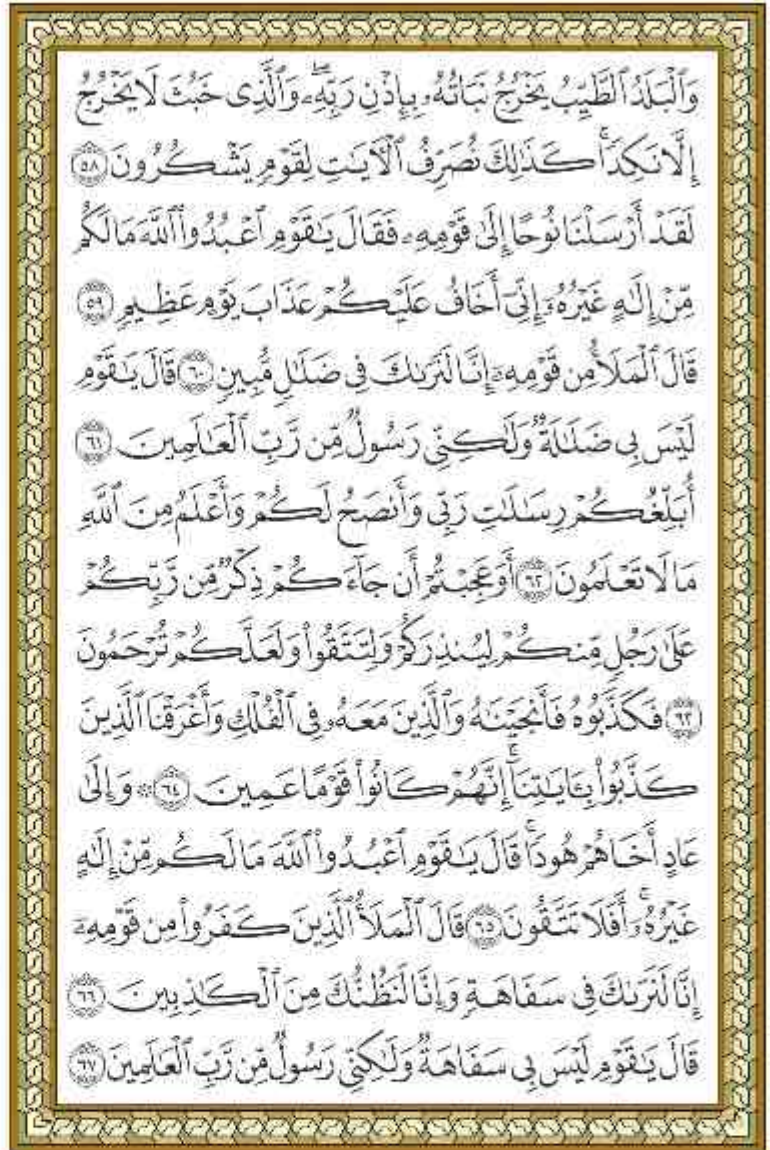 وَٱلْبَلَدُ ٱلطَّيِّبُ يَخْرُجُ نَبَاتُهُۥ بِإِذْنِ رَبِّهِۦۖ وَٱلَّذِى خَبُثَ لَا يَخْرُجُ
إِلَّا نَكِدًاۚ كَذَٰلِكَ نُصَرِّفُ ٱلْـَٔايَٰتِ لِقَوْمٍ يَشْكُرُونَ ٥٨
لَقَدْ أَرْسَلْنَا نُوحًا إِلَىٰ قَوْمِهِۦ فَقَالَ يَٰقَوْمِ ٱعْبُدُوا۟ ٱللَّهَ مَا لَكُم
مِّنْ إِلَٰهٍ غَيْرُهُۥٓ إِنِّىٓ أَخَافُ عَلَيْكُمْ عَذَابَ يَوْمٍ عَظِيمٍ ٥٩
قَالَ ٱلْمَلَأُ مِن قَوْمِهِۦٓ إِنَّا لَنَرَىٰكَ فِى ضَلَٰلٍ مُّبِينٍ ٦٠ قَالَ يَٰقَوْمِ
لَيْسَ بِى ضَلَٰلَةٌ وَلَٰكِنِّى رَسُولٌ مِّن رَّبِّ ٱلْعَٰلَمِينَ ٦١
أُبَلِّغُكُمْ رِسَٰلَٰتِ رَبِّى وَأَنصَحُ لَكُمْ وَأَعْلَمُ مِنَ ٱللَّهِ
مَا لَا تَعْلَمُونَ ٦٢ أَوَعَجِبْتُمْ أَن جَآءَكُمْ ذِكْرٌ مِّن رَّبِّكُمْ
عَلَىٰ رَجُلٍ مِّنكُمْ لِيُنذِرَكُمْ وَلِتَتَّقُوا۟ وَلَعَلَّكُمْ تُرْحَمُونَ
٦٣ فَكَذَّبُوهُ فَأَنجَيْنَٰهُ وَٱلَّذِينَ مَعَهُۥ فِى ٱلْفُلْكِ وَأَغْرَقْنَا ٱلَّذِينَ
كَذَّبُوا۟ بِـَٔايَٰتِنَآۚ إِنَّهُمْ كَانُوا۟ قَوْمًا عَمِينَ ٦٤ ۞ وَإِلَىٰ
عَادٍ أَخَاهُمْ هُودًاۚ قَالَ يَٰقَوْمِ ٱعْبُدُوا۟ ٱللَّهَ مَا لَكُم مِّنْ إِلَٰهٍ
غَيْرُهُۥٓۚ أَفَلَا تَتَّقُونَ ٦٥ قَالَ ٱلْمَلَأُ ٱلَّذِينَ كَفَرُوا۟ مِن قَوْمِهِۦٓ
إِنَّا لَنَرَىٰكَ فِى سَفَاهَةٍ وَإِنَّا لَنَظُنُّكَ مِنَ ٱلْكَٰذِبِينَ ٦٦
قَالَ يَٰقَوْمِ لَيْسَ بِى سَفَاهَةٌ وَلَٰكِنِّى رَسُولٌ مِّن رَّبِّ ٱلْعَٰلَمِينَ ٦٧